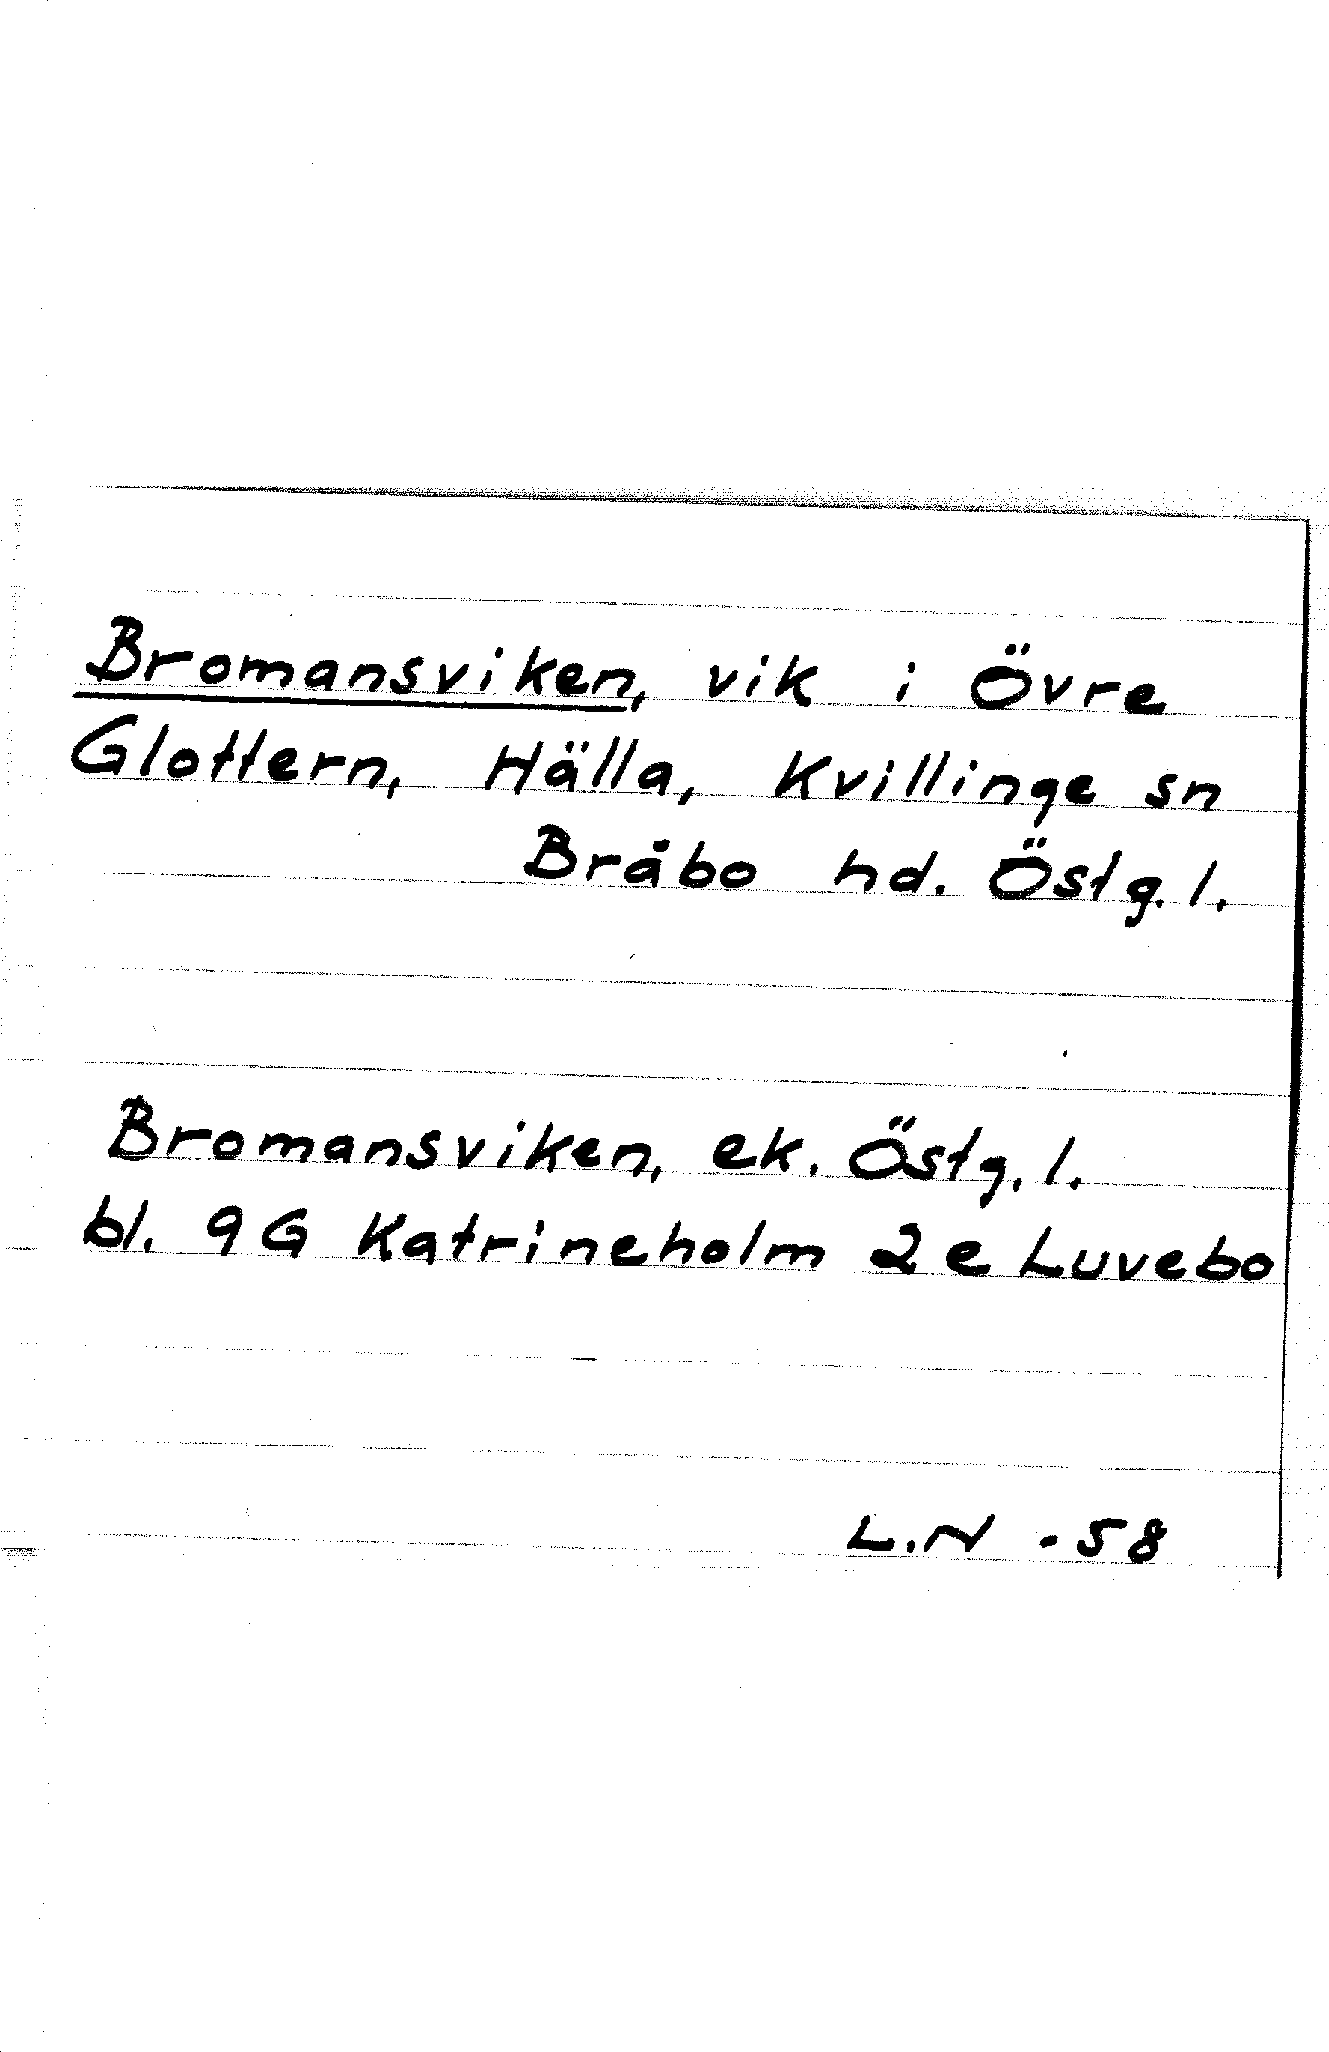 Bromansviken, vik i Övre
Glottern, Hälla, Kvillinge sn
Bråbo hd. Östg. l.
Bromansviken, ek. Östg. l.
bl. 9G Katrineholm 2e Luvebo
L.N -58